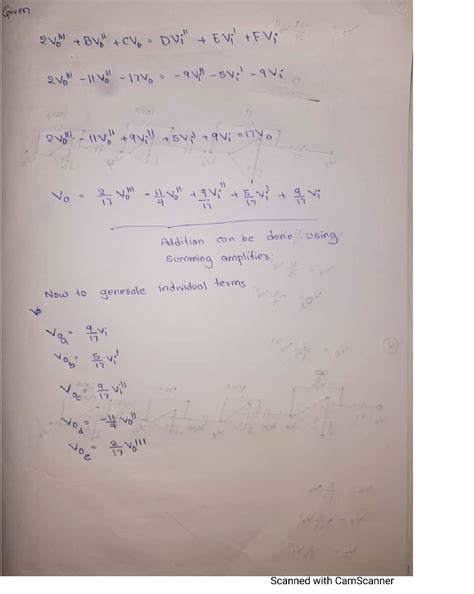 Given
2V₀''' + BV₀'' + CV₀ = DVᵢ'' + EVᵢ' + FVᵢ
2V₀''' - 11V₀'' - 17V₀ = -9Vᵢ'' - 5Vᵢ' - 9Vᵢ
2V₀''' - 11V₀'' + 9Vᵢ'' + 5Vᵢ' + 9Vᵢ = 17V₀
V₀ = 2/17 V₀''' - 11/7 V₀'' + 9/17 Vᵢ'' + 5/17 Vᵢ' + 9/17 Vᵢ
Addition can be done using
summing amplifier.
Now to generate individual terms
V₀ₐ = 9/17 Vᵢ
V₀b = 5/17 Vᵢ'
V₀c = 9/17 Vᵢ''
V₀d = -11/7 V₀''
V₀e = 2/17 V₀'''
Scanned with CamScanner